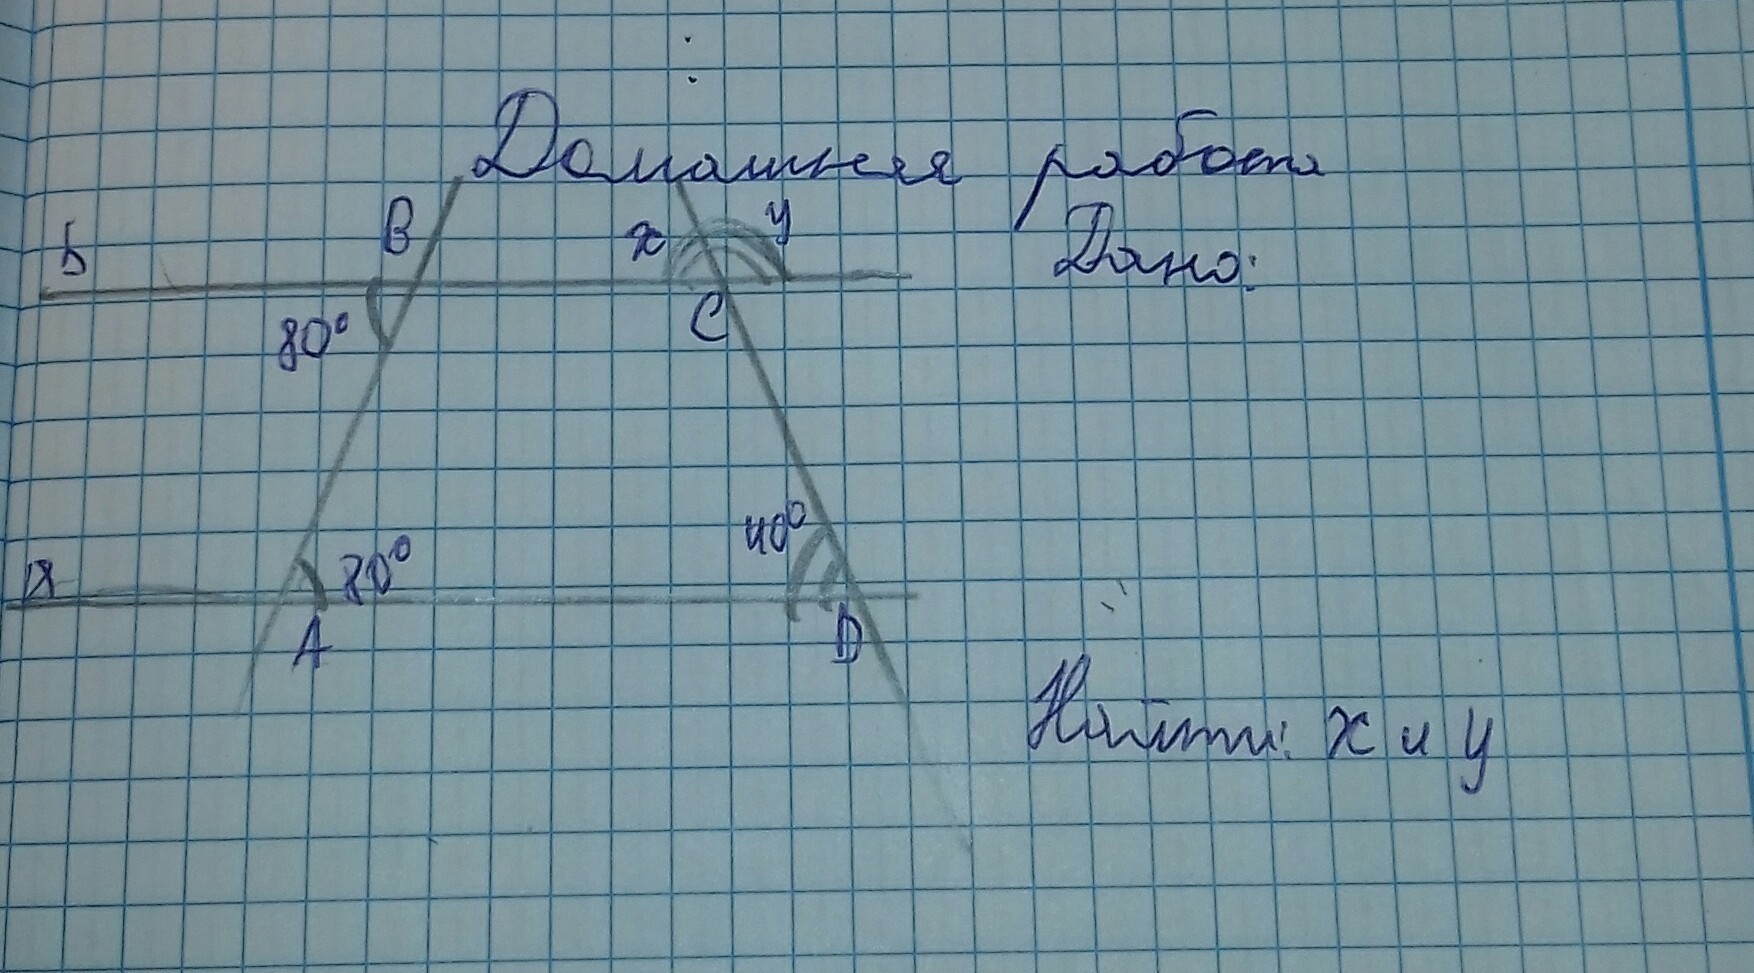 Домашняя работа
B
y
x
b
Дано:
C
80°
40°
80°
a
A
D
Найти: x и y